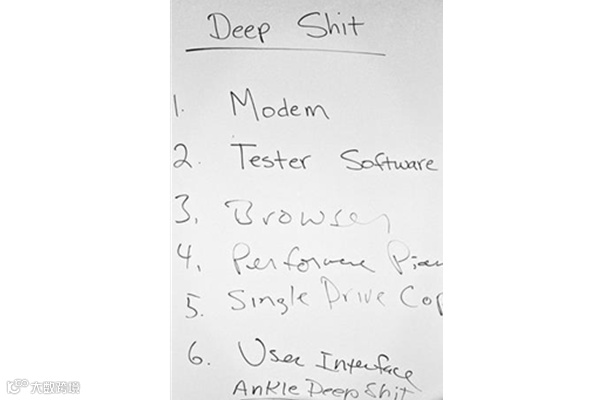 Deep Shit
1. Modem
2. Tester Software
3. Browser
4. Performance Pian
5. Single Drive Cop
6. User Interface
Ankle Deep Shit
大数跨境